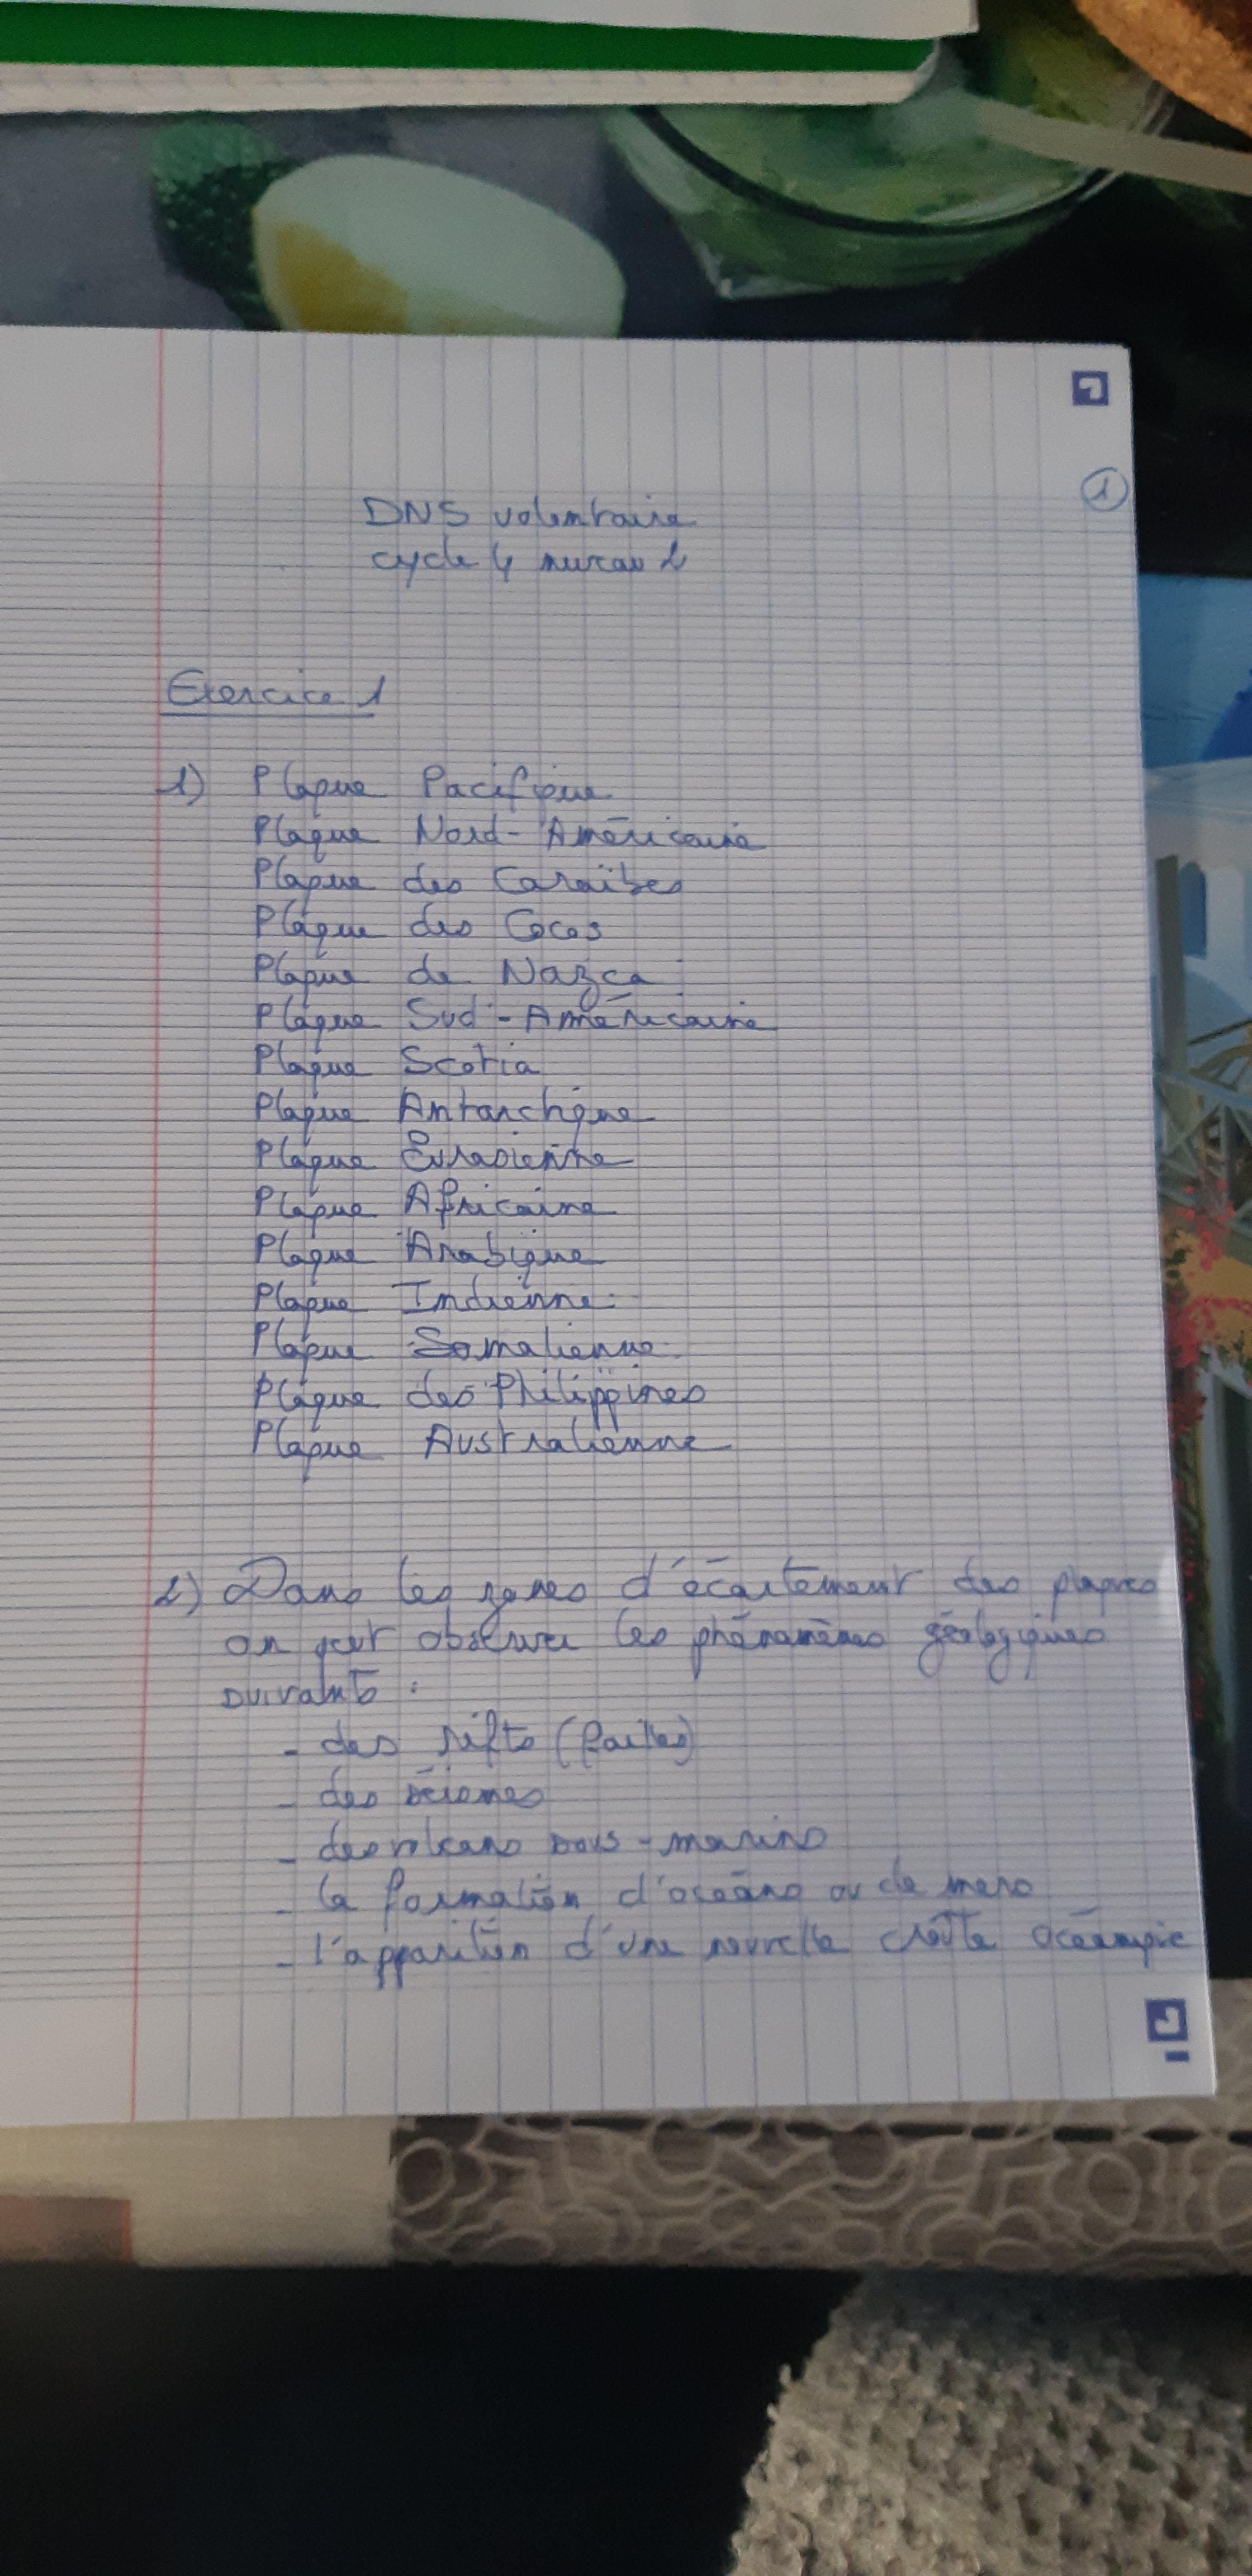 1
DNS volontaire
cycle 4 niveau 2
Exercice 1
1) Plaque Pacifique
Plaque Nord-Américaine
Plaque des Caraïbes
Plaque des Cocos
Plaque de Nazca
Plaque Sud-Américaine
Plaque Scotia
Plaque Antarctique
Plaque Eurasienne
Plaque Africaine
Plaque Arabique
Plaque Indienne
Plaque Somalienne
Plaque des Philippines
Plaque Australienne
2) Dans les zones d'écartement des plaques
on peut observer les phénomènes géologiques
suivants :
- des rifts (failles)
- des séismes
- des volcans sous-marins
- la formation d'océans ou de mers
- l'apparition d'une nouvelle croûte